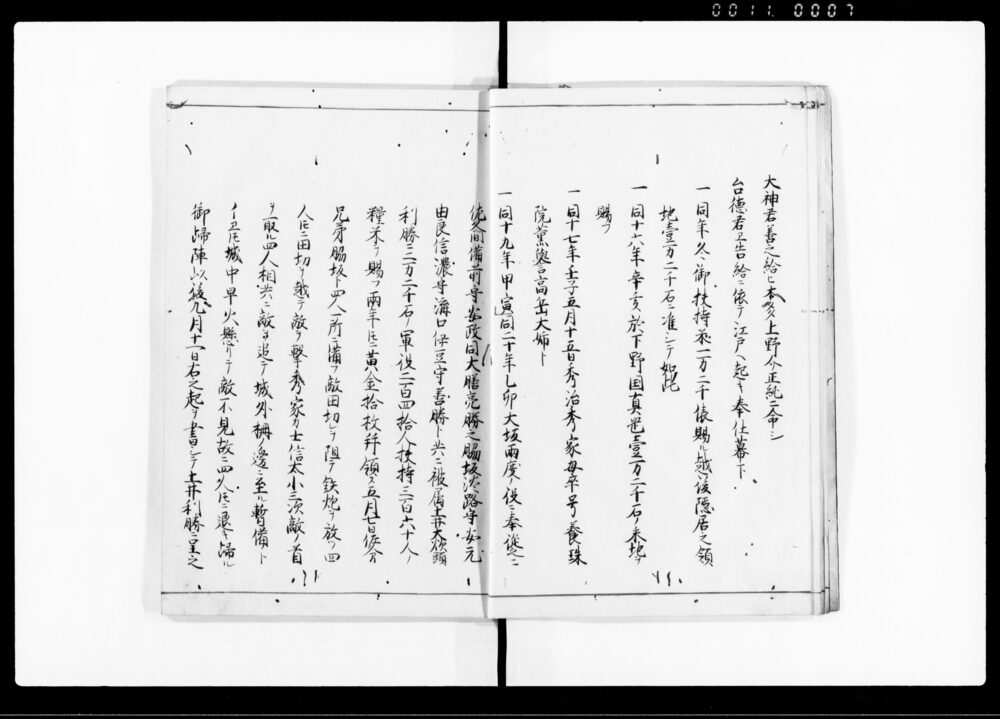 0011 0007
大神君善之給ヒ本多上野介正純ニ命シ
台徳君ヱ告給ニ依テ江戸ヘ起キ奉仕幕下
一同年冬御扶持米一万二千俵賜ル越後隠居之領
地壹万二千石ニ准シテ如此
一同十六年辛亥於下野国真岡壹万二千石ノ采地ヲ
賜フ
一同十七年壬子五月十五日秀治秀家母卒号養珠
院薫譽高岳大姉ト
一同十九年甲寅同二十年乙卯大坂両度ノ役ニ奉従之ニ
佐久間備前守安政同大膳亮勝之脇坂淡路守安元
由良信濃守溝口伊豆守善勝ト共ニ被属土井大炊頭
利勝ニ一万二千石ノ軍役二百四拾人扶持三百六十人ノ
糧米ヲ賜フ両年ニ黄金拾枚拝領ス五月七日佐久間
兄弟脇坂ト四人一所ニ備フ敵田切ヲ阻テ鉄炮ヲ放フ四
人ニ田切ヲ越テ敵ヲ撃秀家カ士信太小三次敵ノ首
ヲ一取ル四人相共ニ敵ヲ追テ城外柵ノ邊ニ至ル暫備ト
イヱ城中早火懸リテ敵不見故ニ四人退キ帰ル
御帰陣以後九月十一日右之起ヲ書シテ土井利勝ニ呈之